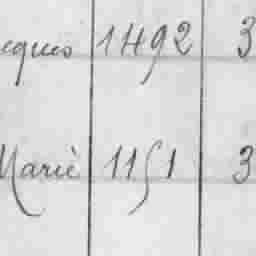 cques 1492 3
Marie 1151 3